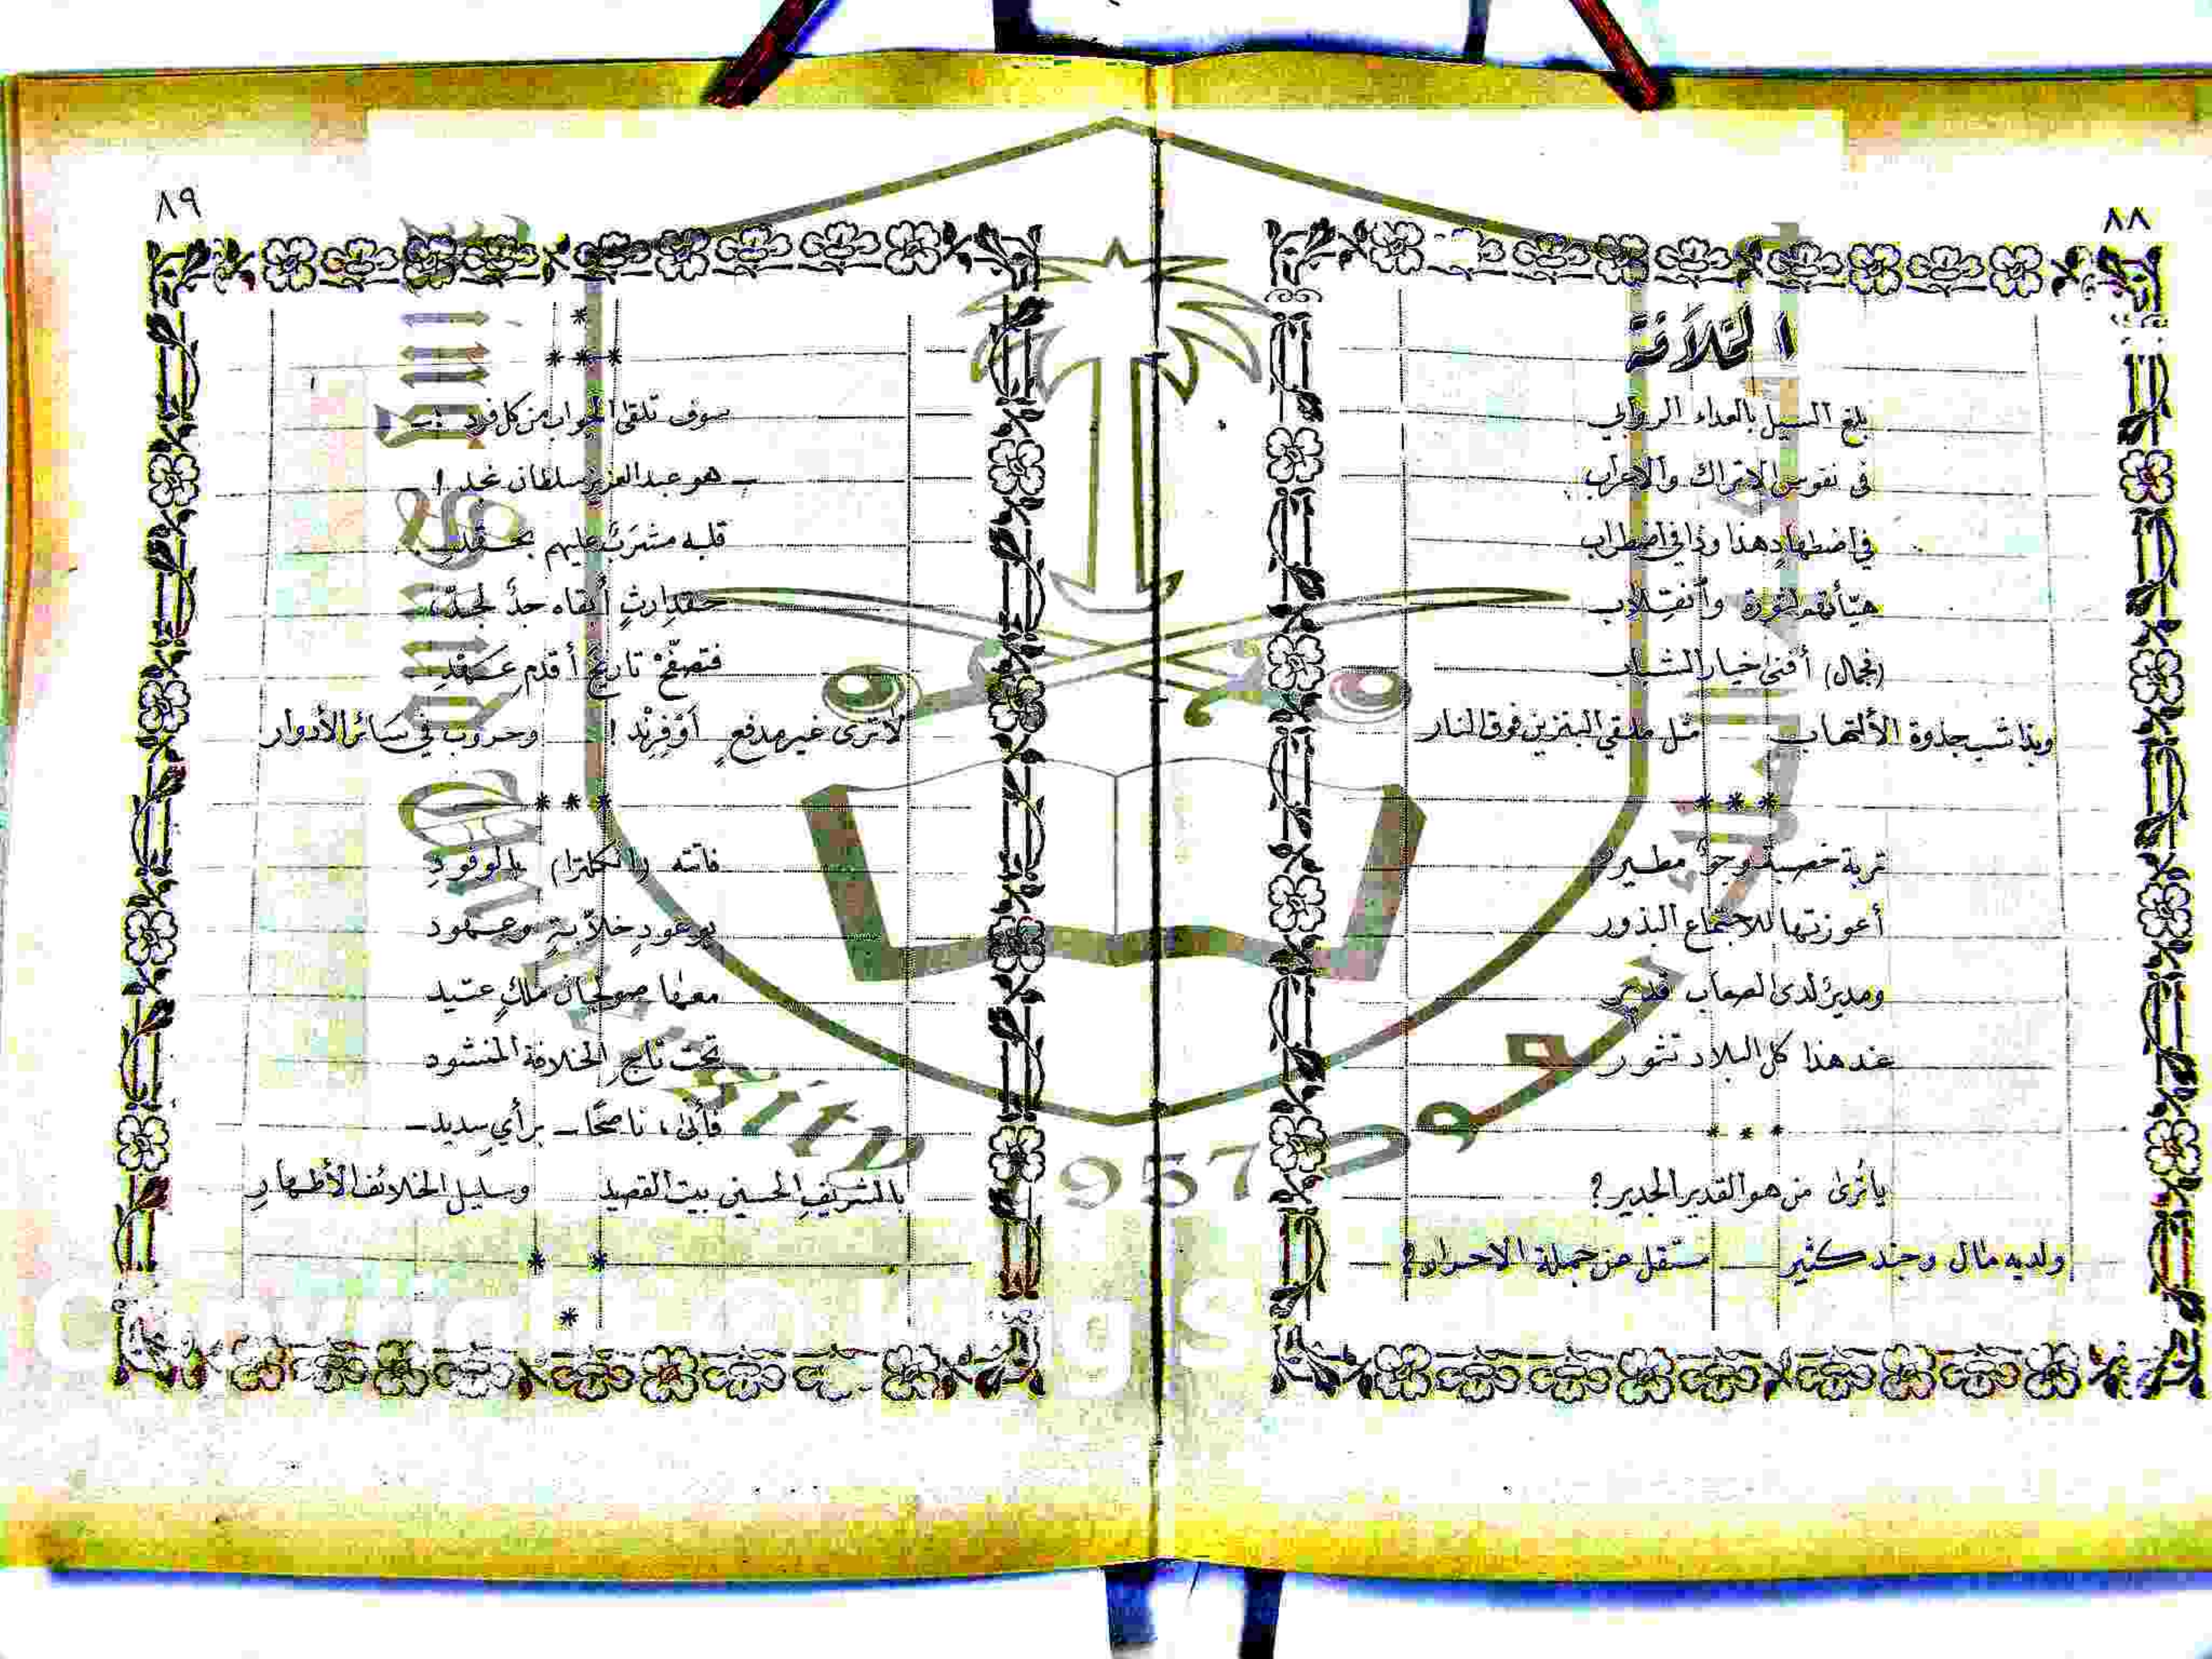 ٨٨
الثلاثة
بلغ السيل بالعداء الروابي
في نفوس الاتراك والاعراب
في اضطهادٍ هذا وذا في اضطراب
هيّأتهم لثورة وانقلاب
(فجمال) أفنى خيار الشباب
وبذا شب جذوة الألتهاب مثل ملقي البنزين فوق النار
***
تربة خصبة وجوٌ مطير
أعوزتها للاجتماع البذور
ومديرٌ لدى الصعاب قدير
عند هذا كل البلاد تثور
***
يا ترى من هو القدير الجدير؟
ولديه مال وجند كثير مستقل من جملة الاحرار؟
٨٩
*
***
سوف تلقى الجواب من كل فرد :
- هو عبد العزيز سلطان نجد !
قلبه مشرَبٌ عليهم بحقد
حقد ارثٍ أبقاه جدٌ لجدّ
فتصفّحْ تاريخَ أقدم عهد
لا ترى غير مدفع أوْ فِرِنْد ! وحروب في سائر الأدوار
***
فأتته (انكلترا) بالوفود
بوعودٍ خلاّبةٍ وعهود
معها صولجان ملكٍ عتيد
تحت تاج الخلافة المنشود
فأتى، ناصحًا - برأي سديد -
بالشريف الحسين بيت القصيد وسليل الخلائف الأطهار
* *
*
King Saud University
1957
Copyright © King S